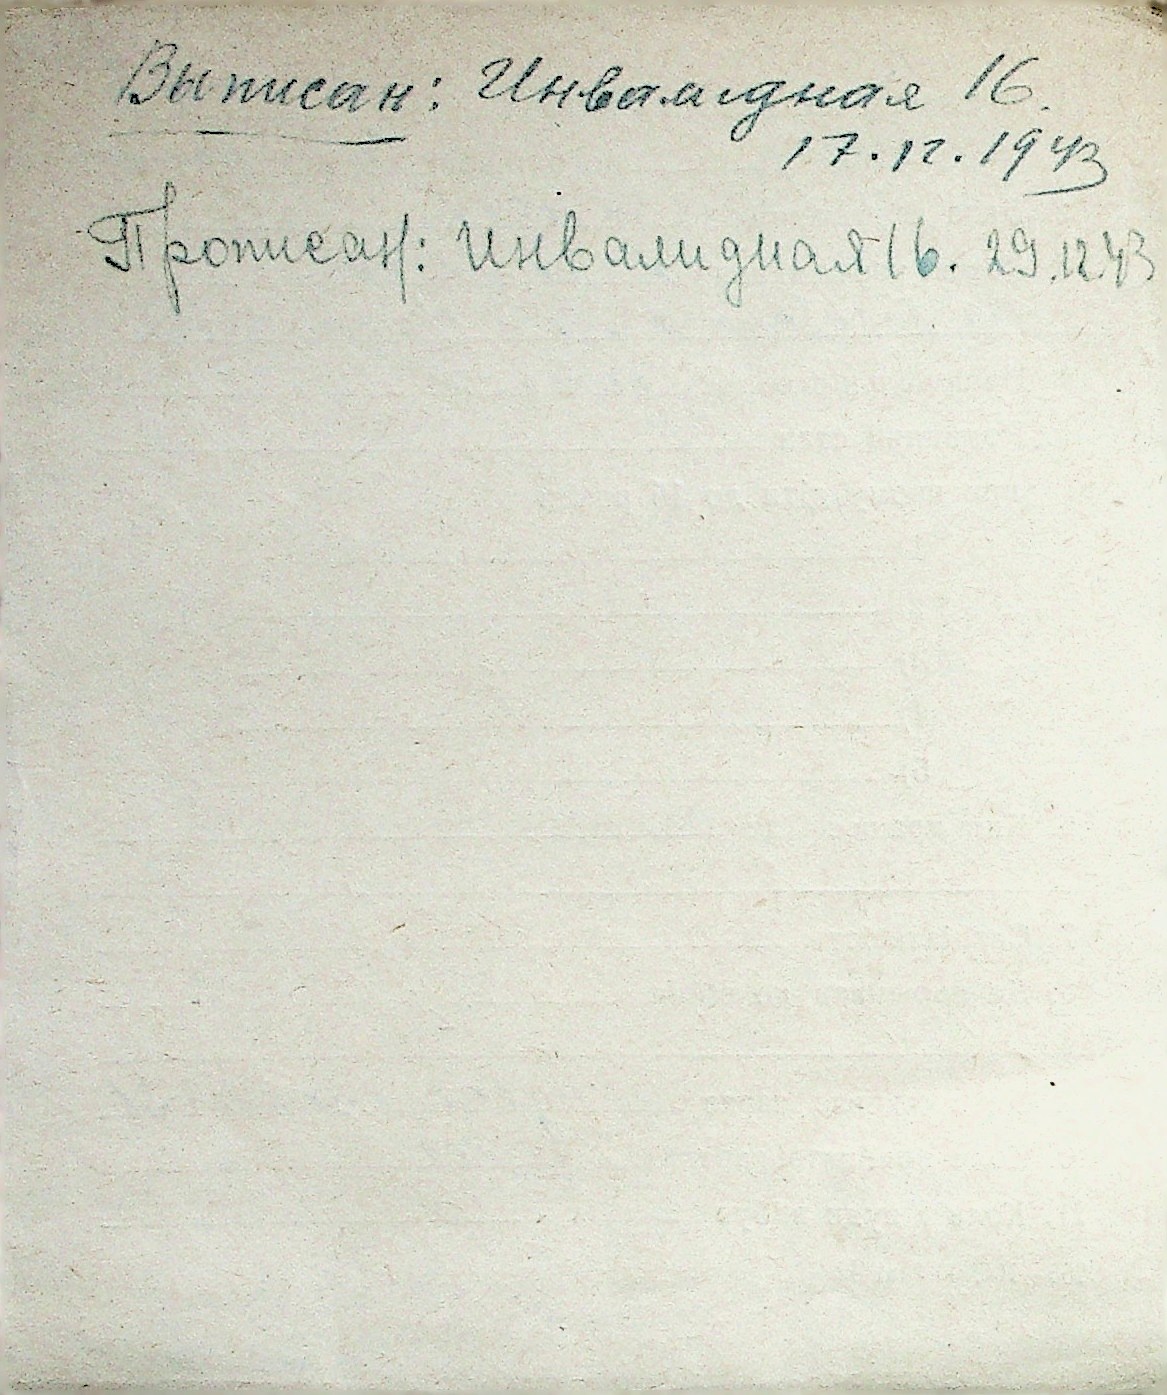 Выписан: Инвалидная 16.
17.12.1943
Прописан: Инвалидная 16. 29.12.43